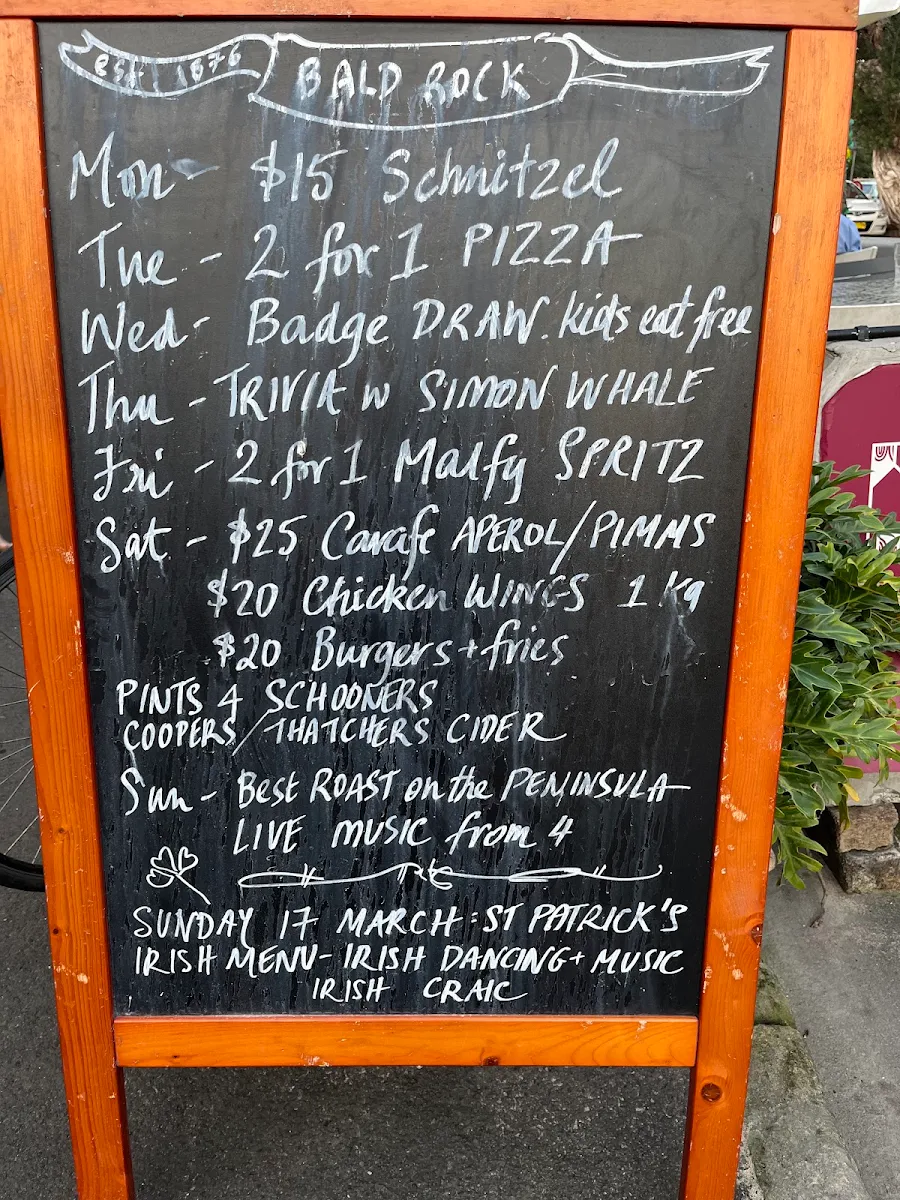 est. 1876
BALD ROCK
Mon - $15 Schnitzel
Tue - 2 for 1 PIZZA
Wed - Badge DRAW. kids eat free
Thu - TRIVIA w SIMON WHALE
Fri - 2 for 1 Malfy SPRITZ
Sat - $25 Carafe APEROL/PIMMS
$20 Chicken WINGS 1 Kg
$20 Burgers + fries
PINTS 4 SCHOONERS
COOPERS / THATCHERS CIDER
Sun - Best ROAST on the PENINSULA
LIVE MUSIC from 4
SUNDAY 17 MARCH : ST PATRICK'S
IRISH MENU - IRISH DANCING + MUSIC
IRISH CRAIC